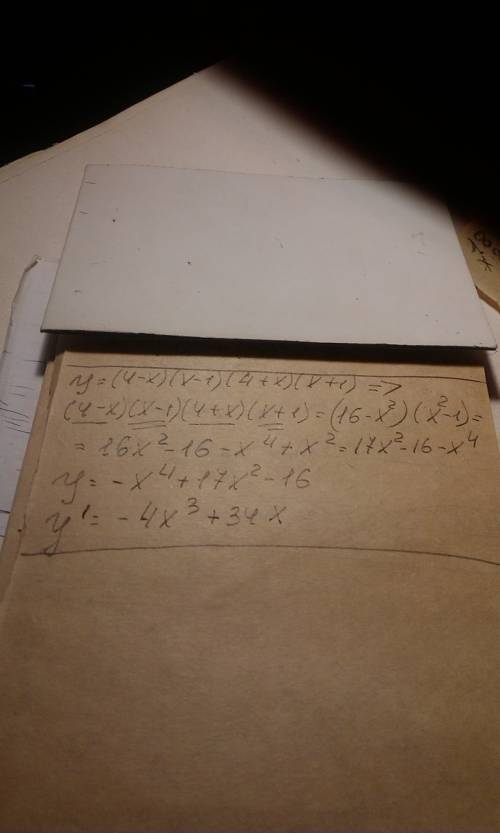 18
x
y = (4-x)(x-1)(4+x)(x+1) =>
(4-x)(x-1)(4+x)(x+1) = (16-x²)(x²-1) =
= 16x² - 16 - x⁴ + x² = 17x² - 16 - x⁴
y = -x⁴ + 17x² - 16
y' = -4x³ + 34x